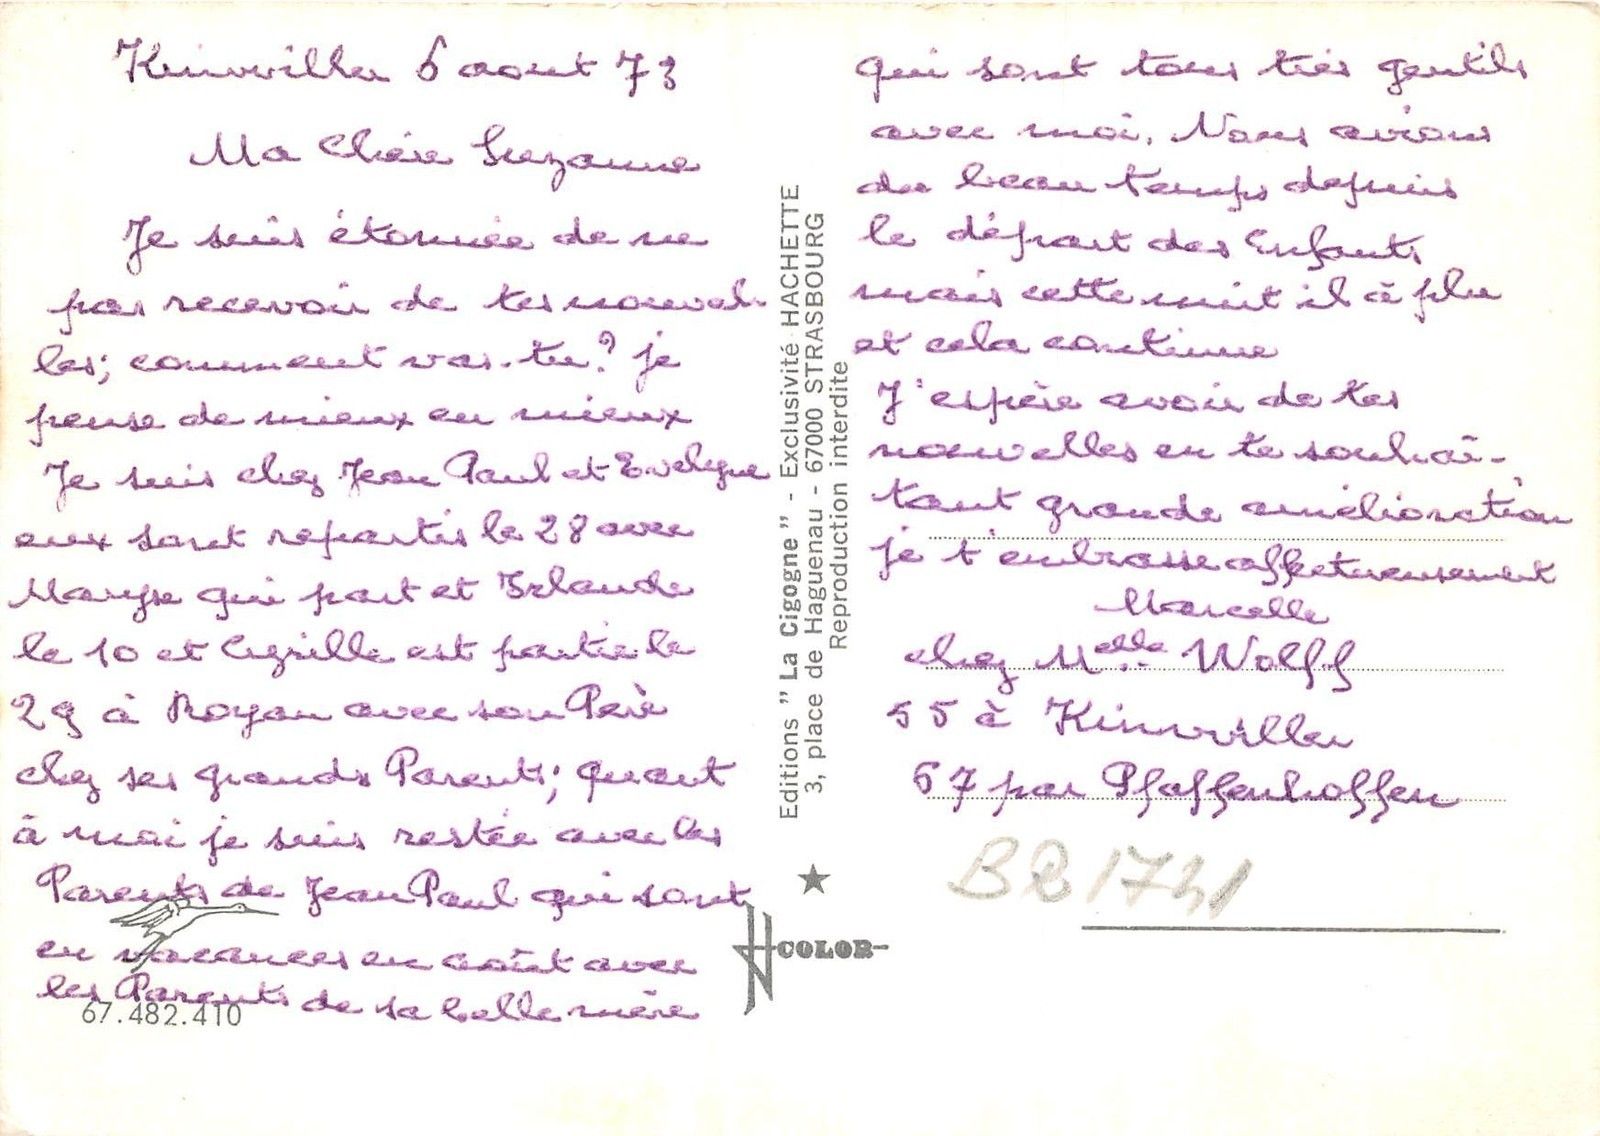 Kinwiller 6 aout 73
Ma Chère Suzanne
Je suis étonnée de ne
pas recevoir de tes nouvel-
les; comment vas-tu? je
pense de mieux en mieux
Je suis chez Jean Paul et Evelyne
eux sont repartis le 28 avec
Maryse qui part et Irlande
le 10 et Cyrille est partie le
29 à Royan avec son Père
chez ses grands Parents; quant
à moi je suis restée avec les
Parents de Jean Paul qui sont
en vacances en août avec
les Parents de sa belle mère
67.482.410
Editions "La Cigogne" - Exclusivité HACHETTE
3, place de Haguenau - 67000 STRASBOURG
Reproduction interdite
COLOR
qui sont tous très gentils
avec moi. Nous avions
du beau temps depuis
le départ des Enfants
mais cette nuit il à plu
et cela continue
J'espère avoir de tes
nouvelles en te souhai-
tant grande amélioration
je t'embrasse affectueusement
Marcelle
chez Melle Wolff
55 à Kinwiller
67 par Pfaffenhoffen
BR1741